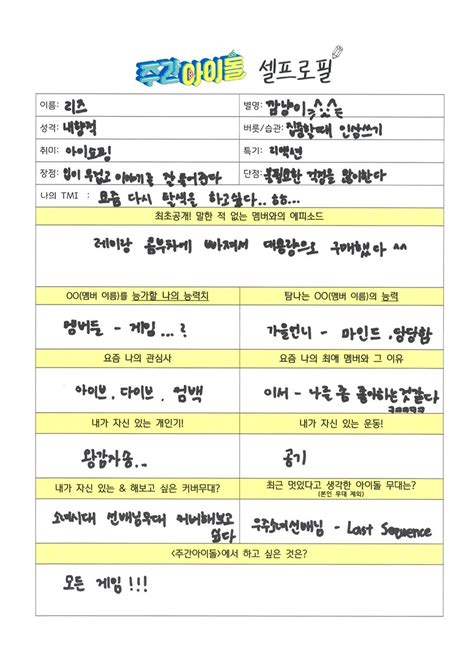 주간아이돌 셀프로필
이름: 리즈
별명: 깜냥이
성격: 내향적
버릇/습관: 집중할때 인상쓰기
취미: 아이쇼핑
특기: 리액션
장점: 입이 무겁고 이야기를 잘 들어준다
단점: 불필요한 걱정을 많이한다
나의 TMI : 요즘 다시 탈색을 하고싶다.. ㅎㅎ...
최초공개! 말한 적 없는 멤버와의 에피소드
레이랑 음부차에 빠져서 대용량으로 구매했다 ^^
OO(멤버 이름)를 능가할 나의 능력치
탐나는 OO(멤버 이름)의 능력
멤버들 - 게임...?
가을언니 - 마인드, 당당함
요즘 나의 관심사
요즘 나의 최애 멤버와 그 이유
아이브, 다이브, 컴백
이서 - 나를 좀 좋아하는것같다
ㅋㅋㅋㅋㅋ
내가 자신 있는 개인기!
내가 자신 있는 운동!
왕감자송...
공기
내가 자신 있는 & 해보고 싶은 커버무대?
최근 멋있다고 생각한 아이돌 무대는?
(본인 무대 제외)
소녀시대 선배님무대 커버해보고
싶다
우주소녀선배님 - Last Sequence
<주간아이돌>에서 하고 싶은 것은?
모든 게임 !!!